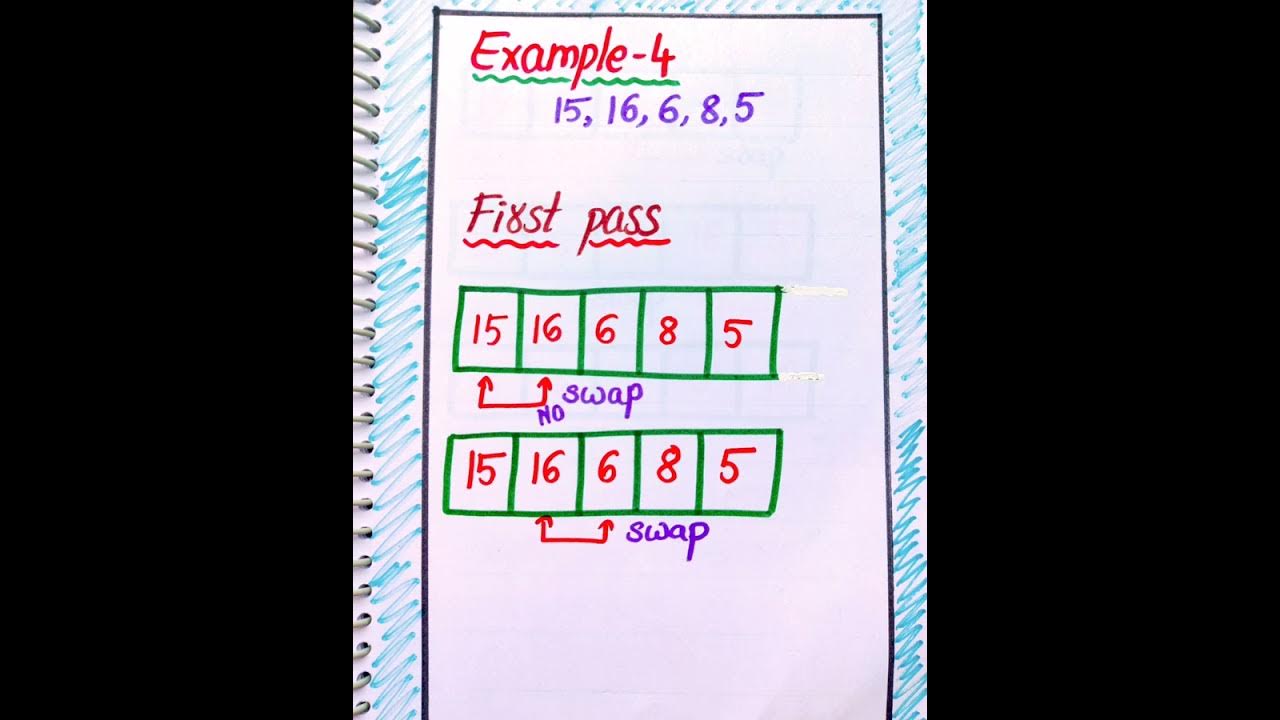 Example-4
15, 16, 6, 8, 5
First pass
15 16 6 8 5
NO swap
15 16 6 8 5
swap